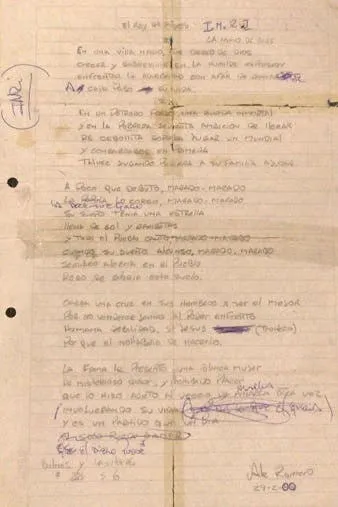 El Rey de
LA MANO DE DIOS
En una villa nació, fue deseo de Dios
crecer y sobrevivir en la humilde expresión
enfrentar la adversidad con afán de
A cada paso su vida
En un potrero forjó una zurda inmortal
y en la pobreza sedienta ambición de llegar
de cebollita soñaba jugar un mundial
y consagrarse en primera
tal vez jugando pudiera a su familia ayudar
A poco que debutó, Maradó, Maradó
coreó, Maradó, Maradó
La Doce fue quien
su sueño tenía una estrella
llena de gol y gambetas
y todo el pueblo cantó, Maradó, Maradó
su sueño Maradó, Maradó
sembró alegría en el pueblo
regó de gloria este suelo.
Carga una cruz en sus hombros x ser el mejor
por no venderse jamás al poder enfrentó
Humana debilidad, si Jesús (Tropezó)
por que él no habría de hacerlo.
La fama le presentó una blanca mujer
de misterioso sabor, y prohibido placer
que lo hizo adicto al deseo de otra vez
involucrando su vida
y es un partido que un día
el Diego
Ale Romero
29-2-00